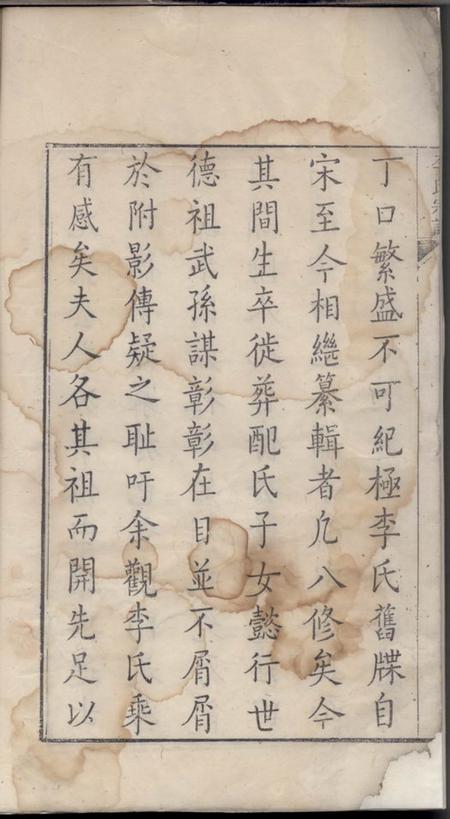 丁口繁盛不可紀極李氏舊牒自
宋至今相繼纂輯者凡八修矣今
其間生卒徙葬配氏子女懿行世
德祖武孫謀彰彰在目並不屑屑
於附影傳疑之耻吁余觀李氏乘
有感矣夫人各其祖而開先足以